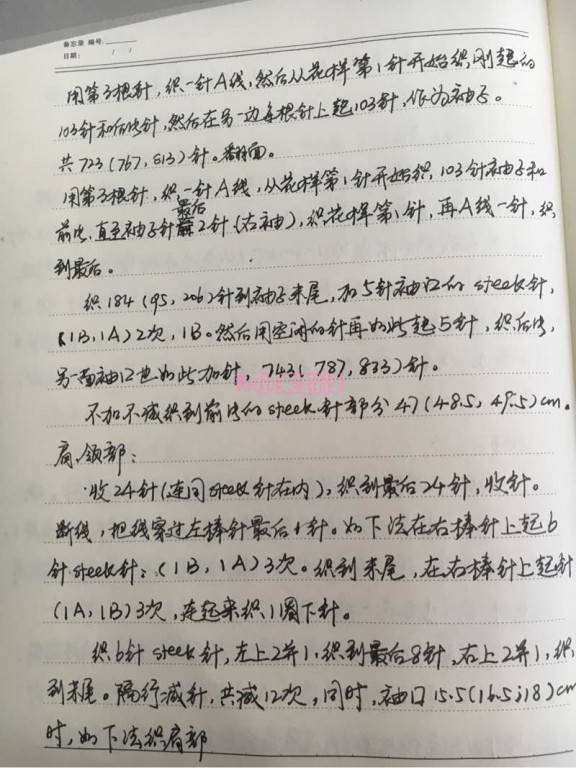 备忘录 编号:
日期: / /
用第3根针,织一针A线,然后从花样第1针开始织刚起的
103针和后片针,然后在另一边每根针上起103针,作为袖子。
共723(767,813)针。翻面。
用第3根针,织一针A线,从花样第1针开始织,103针袖子和
前片,直至袖子针最后2针(右袖),织花样第1针,再A线一针,织
到最后。
织184(95,206)针到袖子末尾,加5针袖口的steek针,
(1B,1A)2次,1B。然后用空闲的针再如此起5针,织后片,
另一面袖口也如此加针,743(787,833)针。
不加不减织到前片的steek针部分47(48.5,49.5)cm。
肩、领部:
收24针(连同steek针在内),织到最后24针,收针。
断线,把线穿过左棒针最后1针。如下法在右棒针上起6
针steek针:(1B,1A)3次。织到末尾,在右棒针上起针
(1A,1B)3次,连起来织1圈下针。
织6针steek针,左上2并1,织到最后8针,右上2并1,织
到末尾。隔行减针,共减12次,同时,袖口15.5(16.5;18)cm
时,如下法织肩部